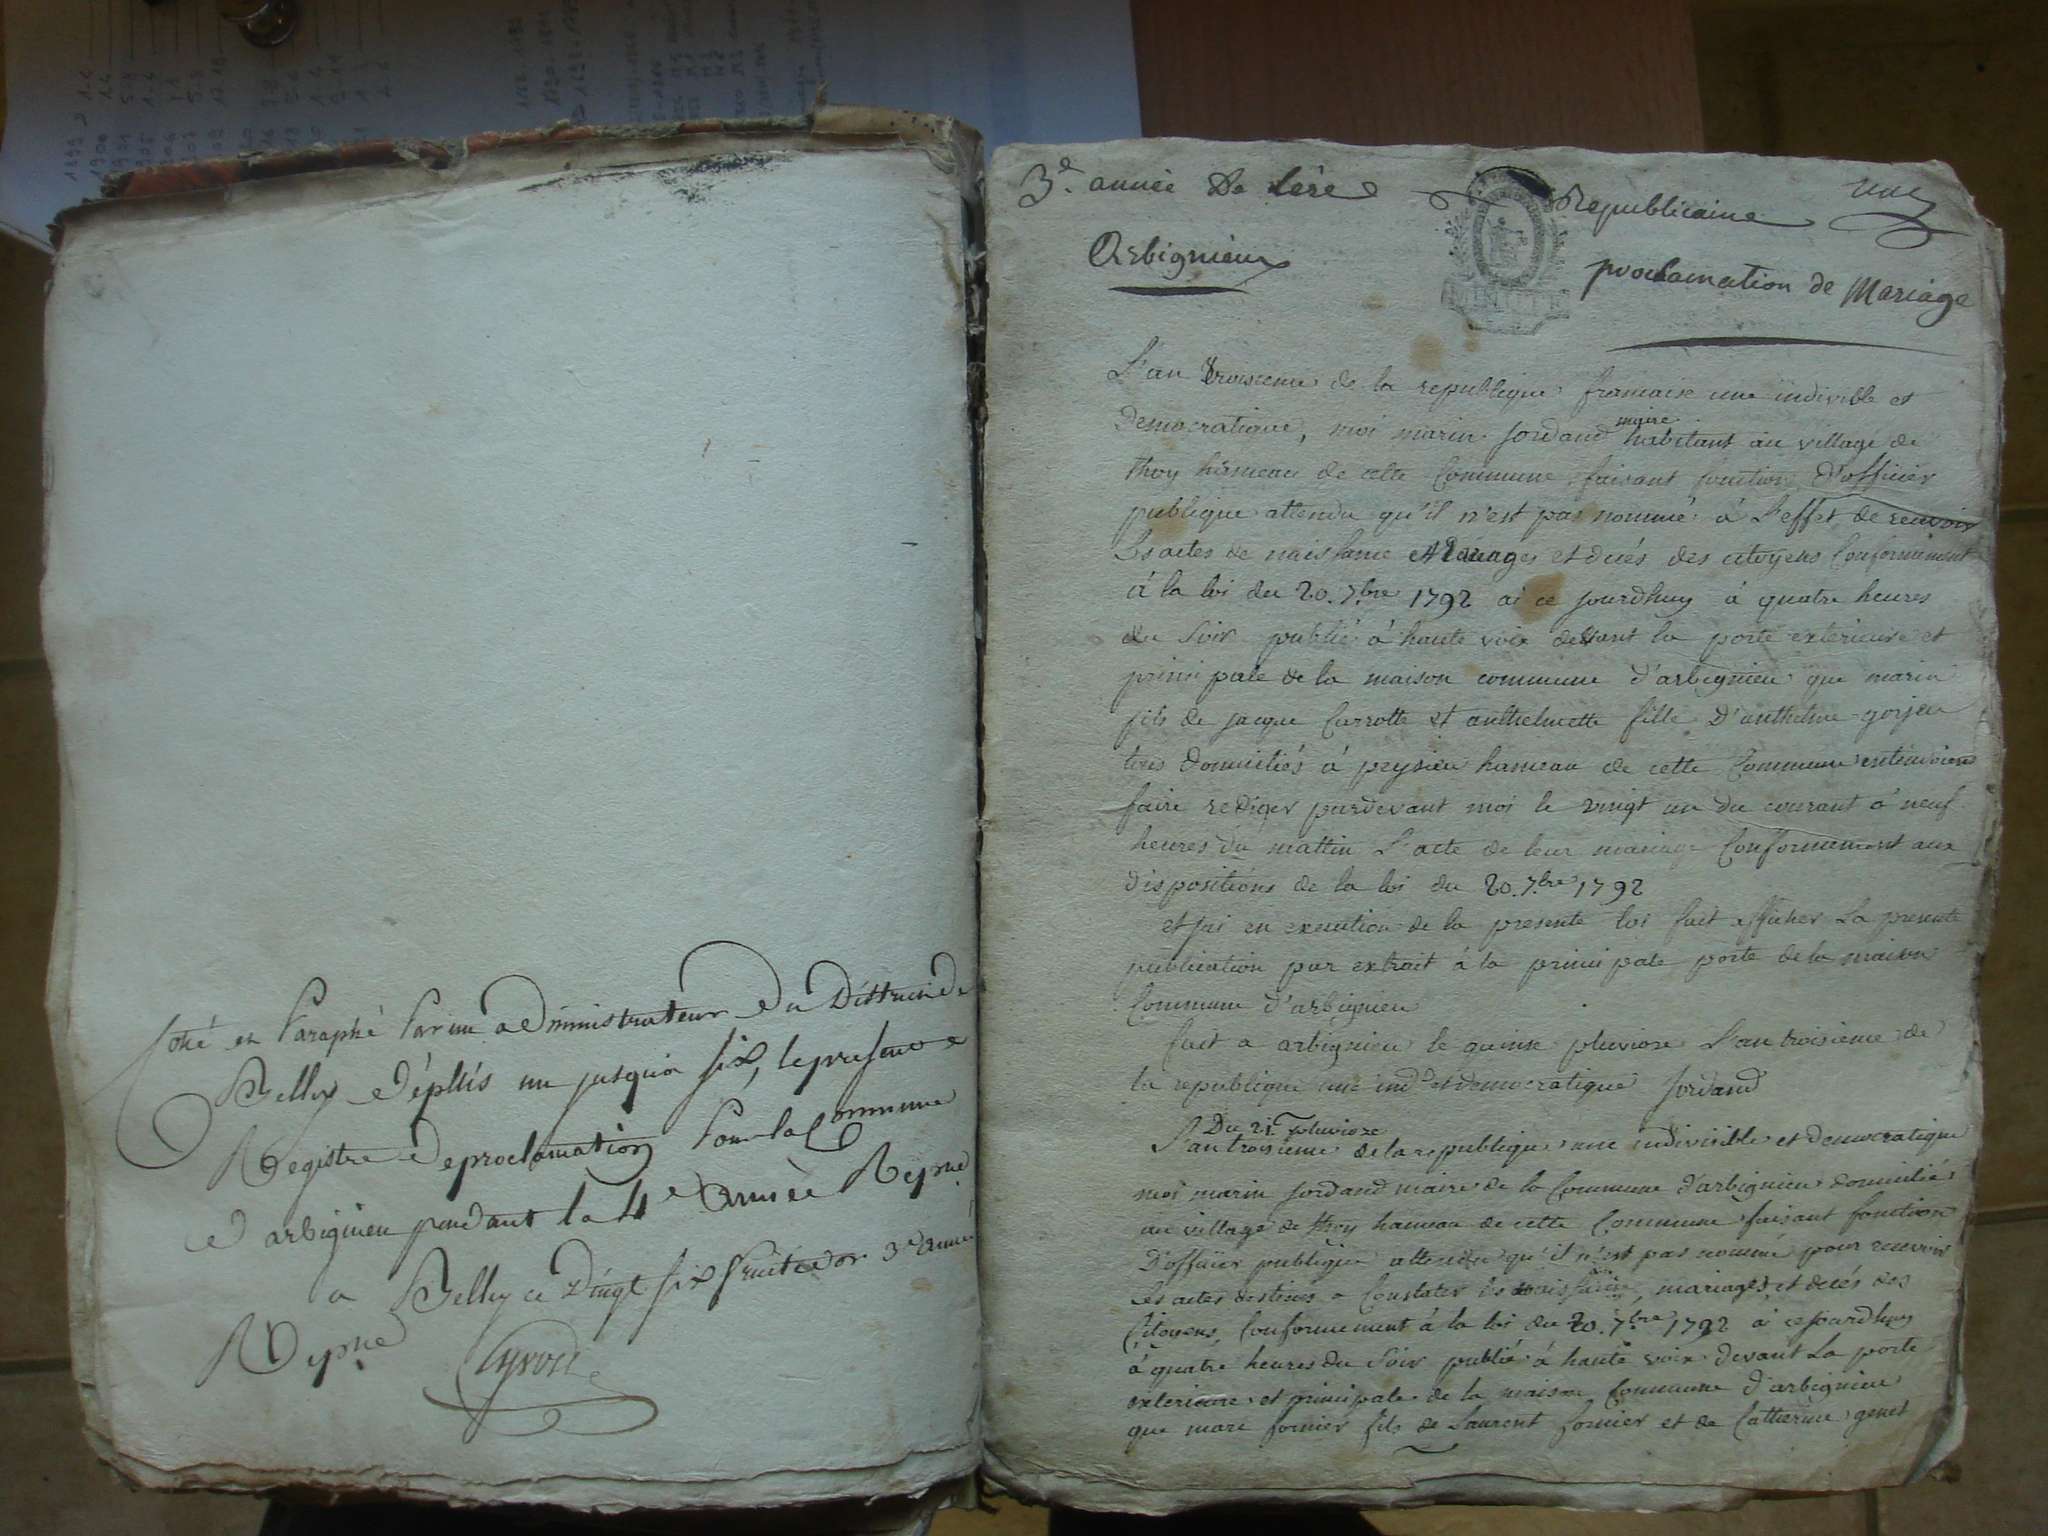 Coté et Paraphé Par un administrateur du District de
Belley Dépuis un jusqu'a six, le present
Registre de proclamation Pour la Commune
d'arbignieu pendant la 4e année Repne
a Belley ce Vingt six fructidor 3e année
Repne
3e. année de l'ère Republicaine une
Arbignieux
proclamation de Mariage
L'an troisieme de la republique francaise une indivible et
Democratique, moi marin Jordand maire habitant au village de
thoy hameau de cette Commune faisant fonction D'officier
publique attendu qu'il n'est pas nommé à L'effet de recevoir
Les actes de naissance Mariages et décés des citoyens Conformement
à la loi du 20. 7.bre 1792 ai ce jourdhuy à quatre heures
du soir publié à haute voix devant la porte exterieure et
principale de la maison commune d'arbignieu que marin
fils de jacque Carrotte et anthelmette fille D'anthelme gorjeu
tous domiciliés à peysieu hameau de cette Commune
faire rediger pardevant moi le vingt un du courant à neuf
heures du mattin L'acte de leur mariage Conformement aux
dispositions de la loi du 20. 7.bre 1792
et j'ai en execution de la presente loi fait afficher La presente
publication par extrait à la principale porte de la maison
Commune d'arbignieu
fait a arbignieu le quinse pluviose L'an troisieme de
la republique une ind.e et democratique Jordand
Du 21 pluviose
L'an troisieme de la republique une indivisible et democratique
moi marin Jordand maire de la Commune d'arbignieu domicilié
au village de thoy hameau de cette Commune faisant fonction
D'officier publique attendu qu'il n'est pas nommé pour recevoir
Les actes destinés a Constater les naissance, mariages et decés des
Citoyens, Conformement à la loi du 20. 7.bre 1792 ai cejourdhuy
à quatre heures du soir publié à haute voix devant La porte
exterieure et principale de la maison Commune d'arbignieu
que marc fornier fils de Laurent fornier et de Catherine genet